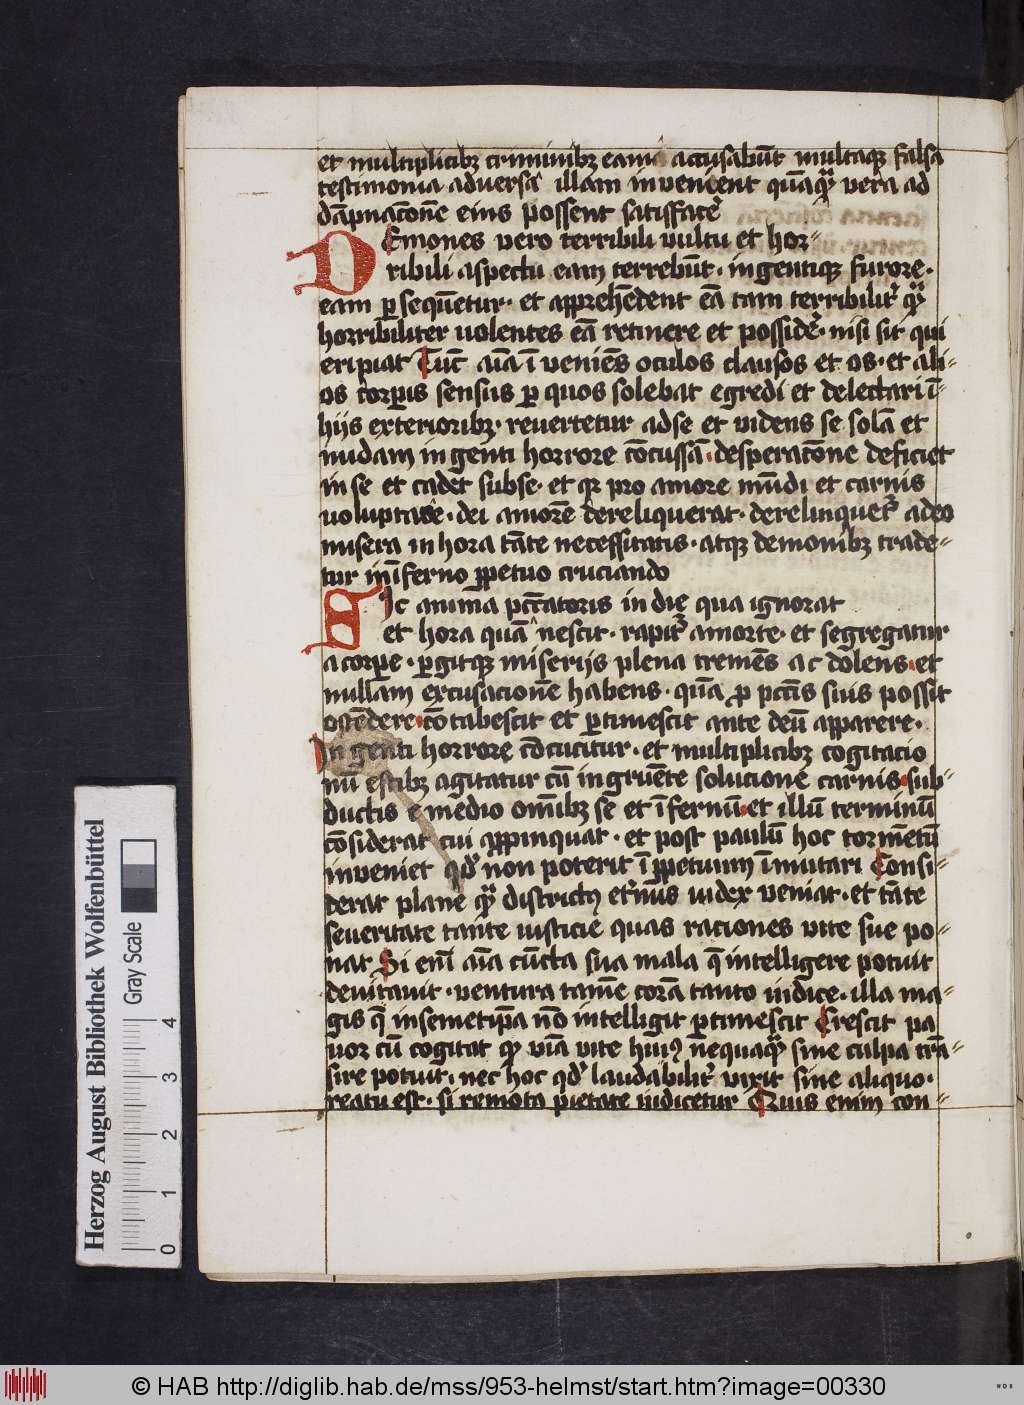 et multiplicibꝫ criminibꝫ eam accusabūt multaqꝫ falsa
testimonia adversꝰ illam invenient quāqᷓ vera ad
dāpnacōne eius possent satisfac̉e
DEmones vero terribili vultu et hor⸗
ribili aspectu eam terrebūt · ingentiqꝫ furore ·
eam ꝑsequētur · et apprehēdent eā tam terribilit̉ qᷓ
horribiliter volentes eā retinere et possid̉e · nisi sit qui
eripiat Tūc aīa īveniēs oculos clausos et os · et ali⸗
os corꝑis sensus ꝑ quos solebat egredi et delectari ī
hijs exterioribꝫ · revertetur ad se et videns se solā et
nudam ingenti horrore cōcussā · desperacōne deficiet
in se et cadet sub se · et qꝛ pro amore mūdi et carnis
voluptate · dei amorē dereliquerat · derelinquet̉ adeo
misera in hora tāte necessitatis · atqꝫ demonibꝫ trade⸗
tur inferno ꝑpetuo cruciando
SIc anima pctatoris in die qua ignorat
et hora quā nescit · rapit̉ a morte · et segregatur
a corꝑe · ꝑgitqꝫ miserijs plena tremēs ac dolens · et
nullam excusacionē habens · quā ꝓ pcctīs suis possit
ostēdere · cōtabescit et ꝑtimescit ante deū apparere ·
Ingenti horrore cōcutitur · et multiplicibꝫ cogitacio
nū estibꝫ agitatur cū ingruēte solucione carnis · sub⸗
ductis e medio omībꝫ se et īfernū · et illū terminū
cōsiderat cui aꝓpinquat · et post paulū hoc tormētū
inveniet qd̉ non poterit ī ꝑpetuum īmutari Consi⸗
derat plane qᷓ districtꝰ et̉nꝰ iudex veniat · et tāte
severitate tante iusticie quas raciones vite sue po⸗
nat Si enī aīa cūcta sua mala q̄ intelligere potuit
devitavit · ventura tamē corā tanto iudice · illa ma⸗
gis q̄ in semetip̄a nō intelligit ꝑtimescit Crescit pa
vor cū cogitat qꝫ viā vite huiꝰ nequaqᷓ sine culpa trā⸗
sire potuit · nec hoc qd̉ laudabilit̉ vixit sine aliquo ·
reatu est · si remota pietate iudicetur Quis enim con⸗
Herzog August Bibliothek Wolfenbüttel
Gray Scale
0 1 2 3 4
© HAB http://diglib.hab.de/mss/953-helmst/start.htm?image=00330